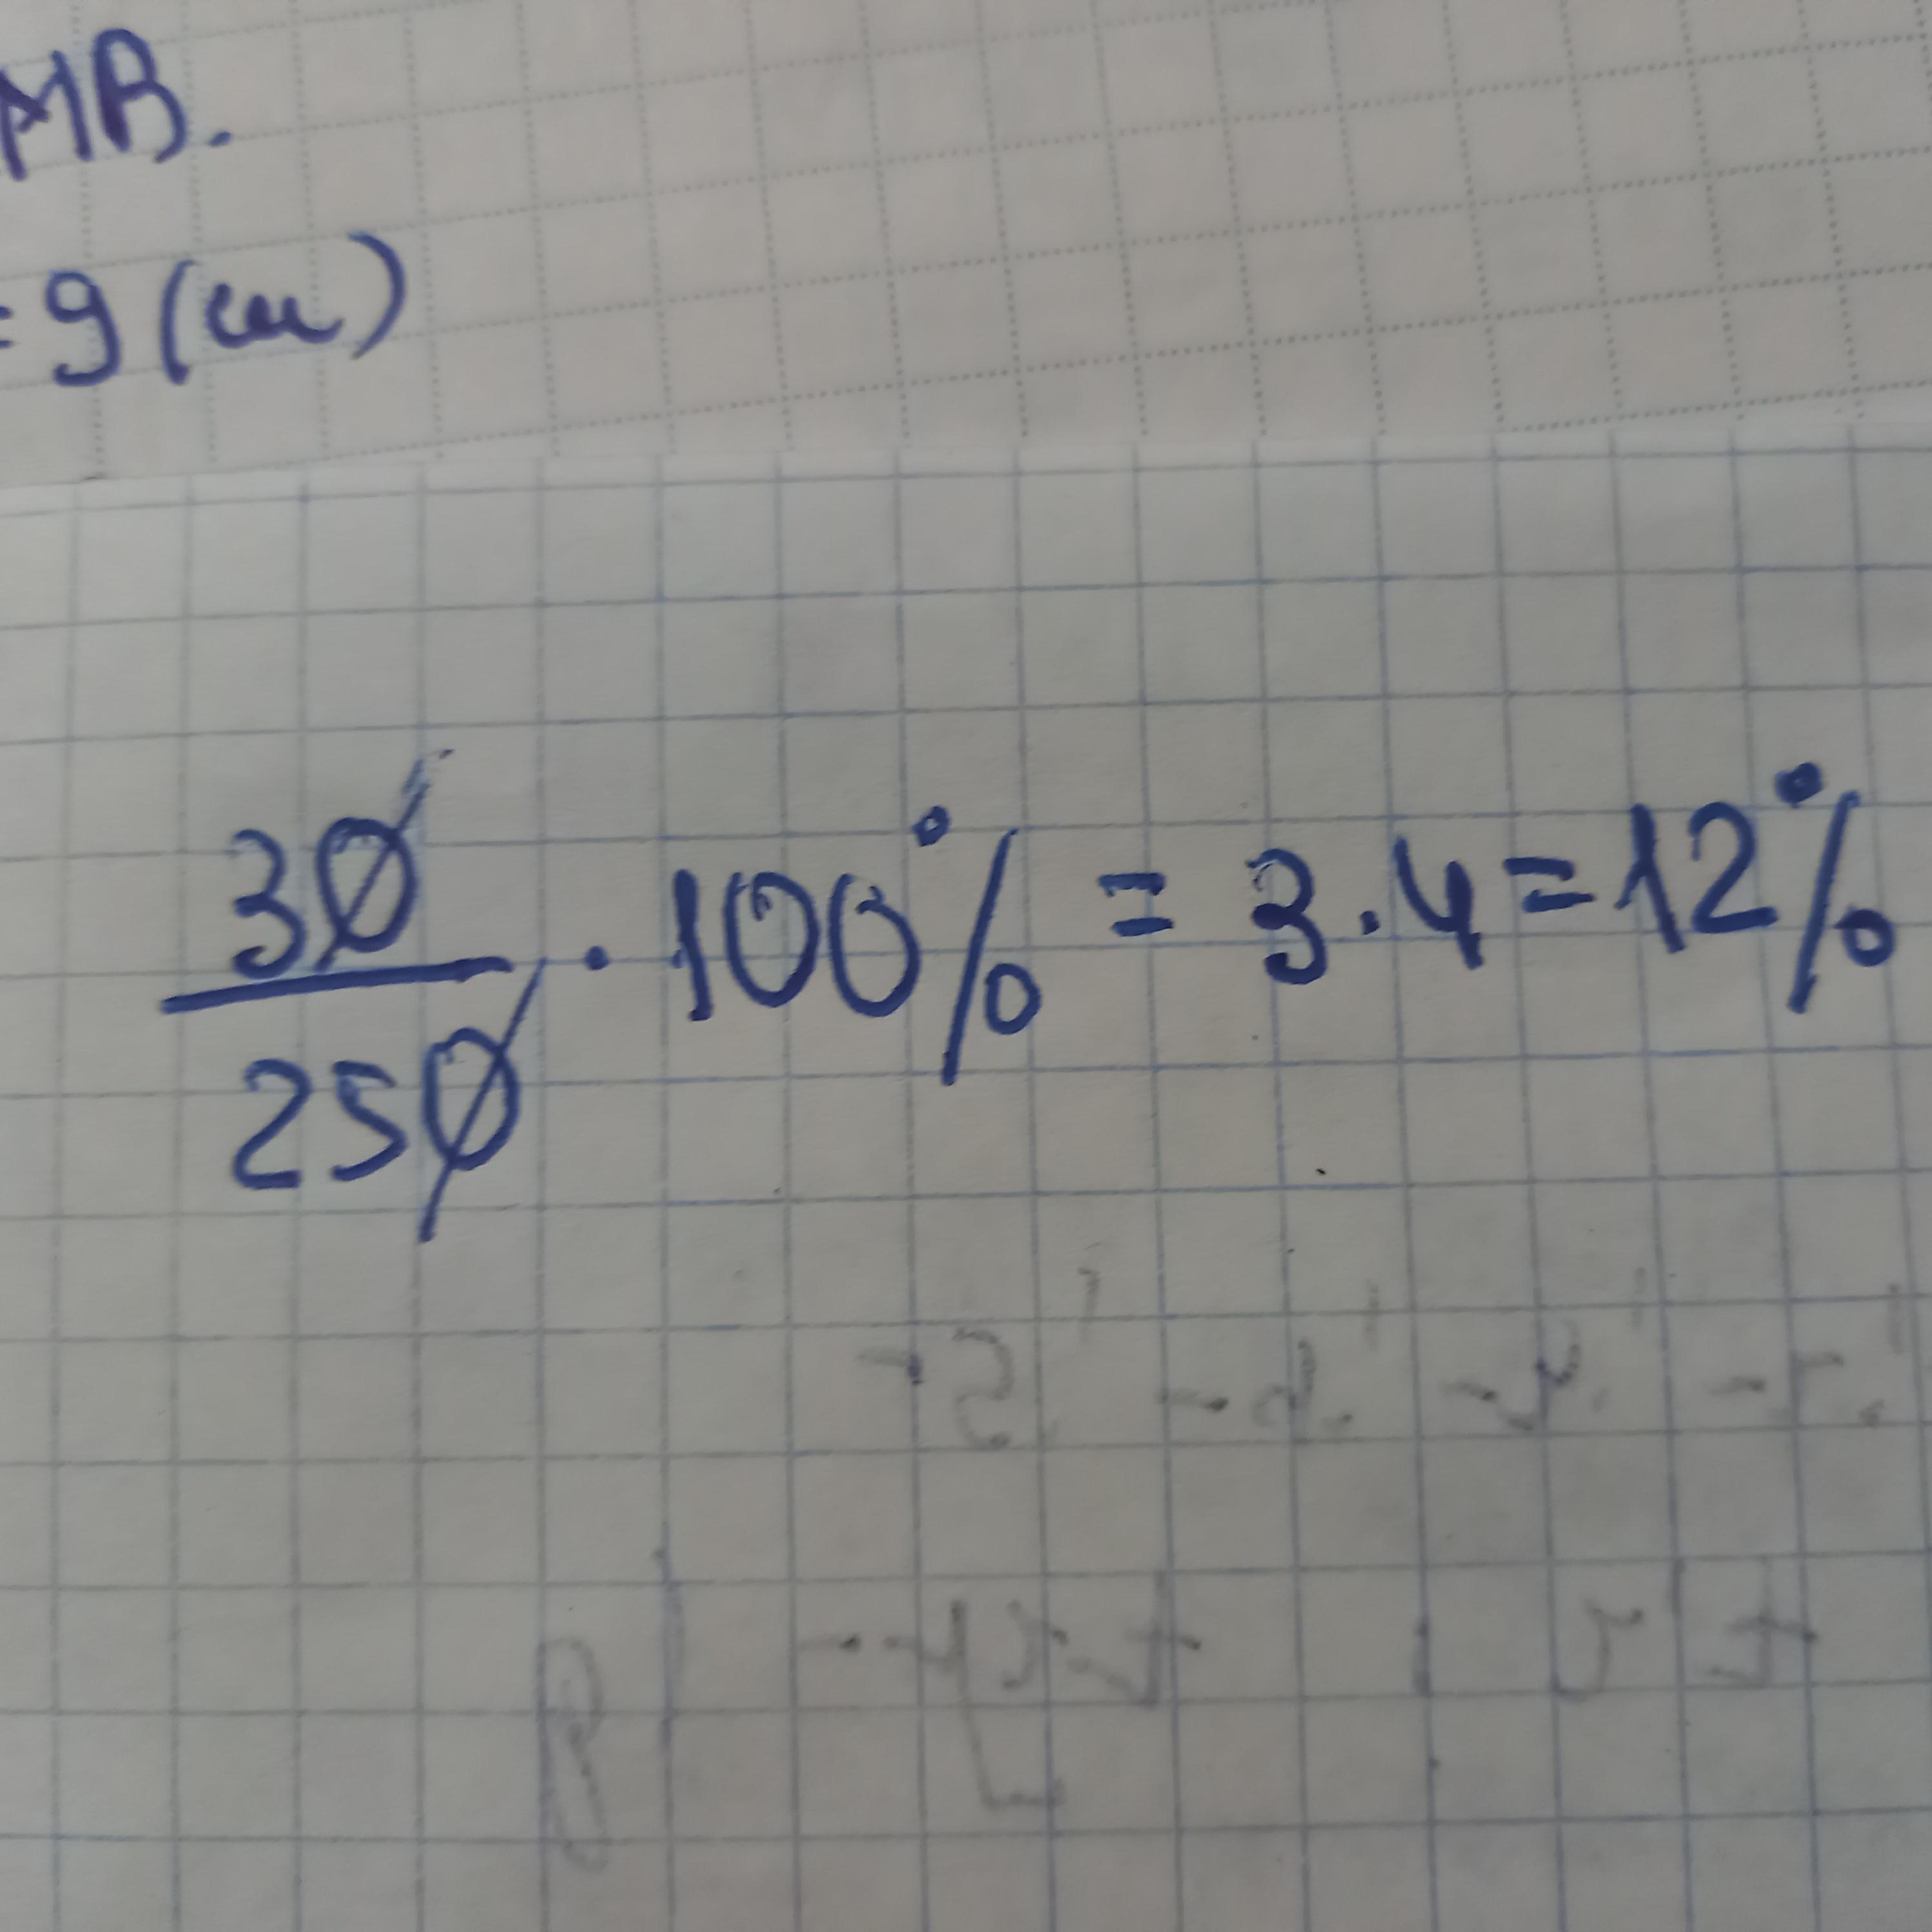 MB.
= 9 (см)
30/250 · 100% = 3 · 4 = 12%